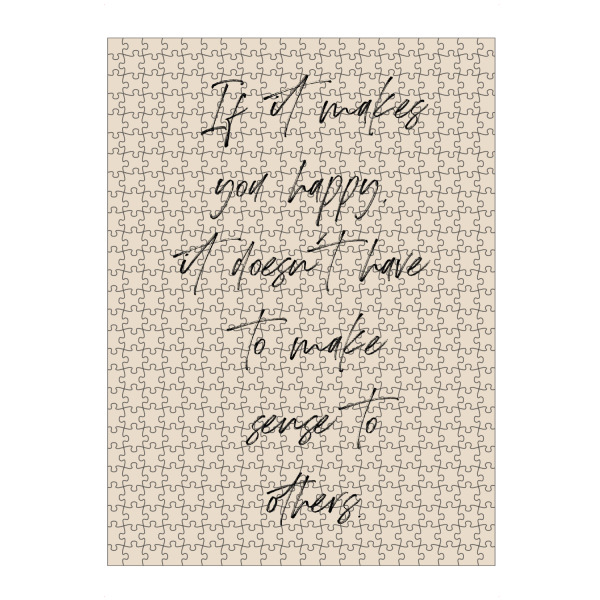 If it makes
you happy,
it doesn't have
to make
sense to
others.